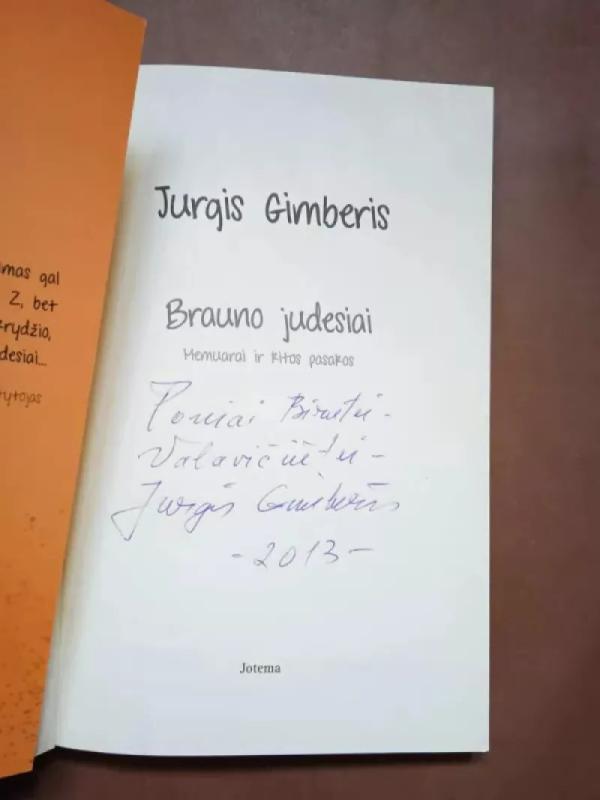 mas gal
Z, bet
krydžio,
desiai...
tytojas
Jurgis Gimberis
Brauno judesiai
Memuarai ir kitos pasakos
Poniai Birutei-
Valavičiūtei-
Jurgis Gimberis
-2013-
Jotema